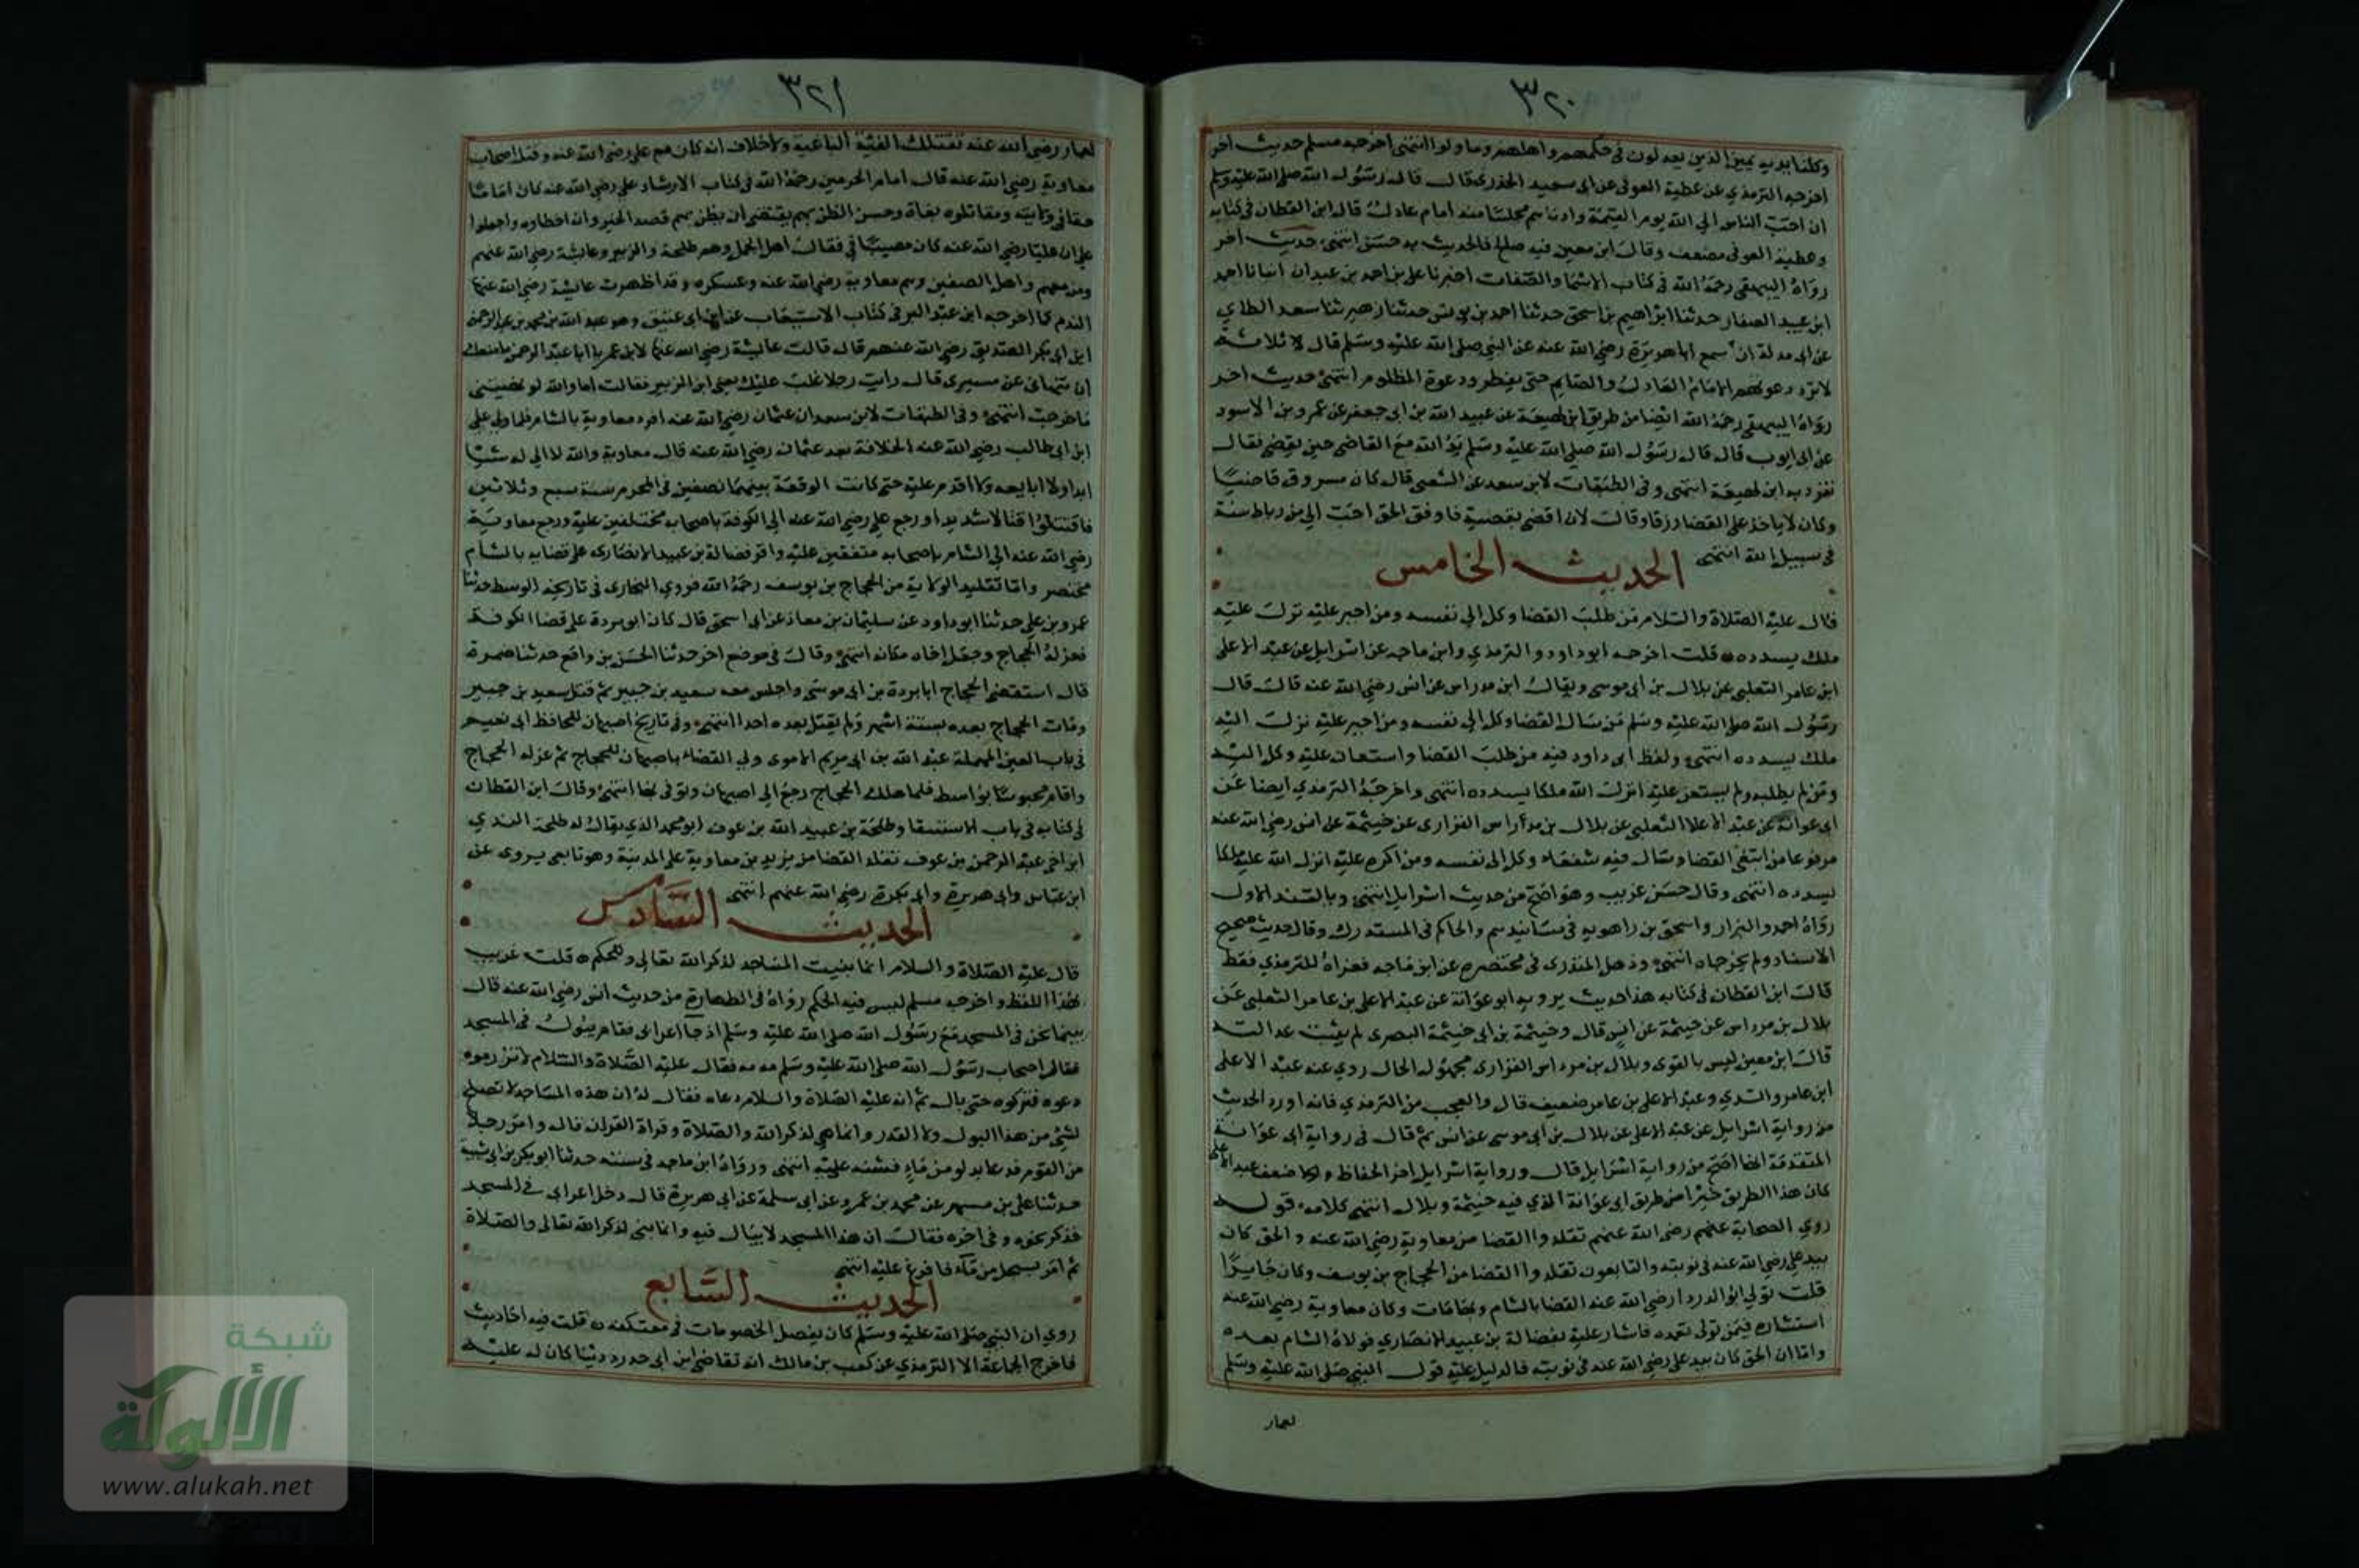 ٣٢٠
وكلتا يديه يمين الذين يعدلون في حكمهم واهلهم وما ولوا انتهى اخرجه مسلم حديث اخر
اخرجه الترمذي عن عطية العوفي عن ابي سعيد الخدري قال قال رسول الله صلى الله عليه وسلم
ان احب الناس الي الله يوم القيمة وادناهم مجلسا منه امام عادل قال ابن القطان في كتابه
وعطية العوفي مضعف وقال ابن معين فيه صالح فالحديث به حسن انتهى حديث اخر
رواه البيهقي رحمه الله في كتاب الاسما والصفات اخبرنا علي بن احمد بن عبدان انبانا احمد
ابن عبيد الصفار حدثنا ابراهيم بن اسحق حدثنا احمد بن يونس حدثنا زهير ثنا سعد الطاي
عن ابي مدلة انه سمع ابا هريرة رضي الله عنه عن النبي صلى الله عليه وسلم قال ثلاثة
لا ترد دعوتهم الامام العادل والصايم حتى يفطر ودعوة المظلوم انتهى حديث اخر
رواه البيهقي رحمه الله ايضا من طريق ابن لهيعة عن عبيد الله بن ابي جعفر عن عمرو بن الاسود
عن ابي ايوب قال قال رسول الله صلى الله عليه وسلم يد الله مع القاضي حين يقضي فقال
تفرد به ابن لهيعة انتهى وفي الطبقات لابن سعد عن الشعبي قال كان مسروق قاضيا
وكان لا ياخذ على القضا رزقا وقال لان اقضي بقضية فاوفق الحق احب الي من رباط سنة
في سبيل الله انتهى الحديث الخامس
قال عليه الصلاة والسلام من طلب القضا وكل الى نفسه ومن اجبر عليه نزل عليه
ملك يسدده قلت اخرجه ابو داود والترمذي وابن ماجه عن اسرايل عن عبد الاعلى
ابن عامر الثعلبي عن بلال بن ابي موسى ويقال ابن مرداس عن انس رضي الله عنه قال قال
رسول الله صلى الله عليه وسلم من سال القضا وكل الى نفسه ومن اجبر عليه نزل اليه
ملك يسدده انتهى ولفظ ابي داود فيه من طلب القضا واستعان عليه وكل اليه
ومن لم يطلبه ولم يستعن عليه انزل الله ملكا يسدده انتهى واخرجه الترمذي ايضا عن
ابي عوانة عن عبد الاعلا الثعلبي عن بلال بن مرداس الفزاري عن خيثمة عن انس رضي الله عنه
مرفوعا من ابتغى القضا وسال فيه شفعاء وكل الى نفسه ومن اكره عليه انزل الله عليه ملكا
يسدده انتهى وقال حسن غريب وهو اصح من حديث اسرايل انتهى وبالسند الاول
رواه احمد والبزار واسحق بن راهويه في مسانيدهم والحاكم في المستدرك وقال حديث صحيح
الاسناد ولم يخرجاه انتهى وذهل المنذري في مختصره عن ابن ماجه فعزاه للترمذي فقط
قال ابن القطان في كتابه هذا حديث يرويه ابو عوانة عن عبد الاعلى بن عامر الثعلبي عن
بلال بن مرداس عن خيثمة عن انس قال وخيثمة بن ابي خيثمة البصري لم يثبت عدالته
قال ابن معين ليس بالقوي وبلال بن مرداس الفزاري مجهول الحال روي عنه عبد الاعلى
ابن عامر والسدي وعبد الاعلى بن عامر ضعيف قال والعجب من الترمذي فانه اورد الحديث
من رواية اسرايل عن عبد الاعلى عن بلال بن ابي موسى عن انس ثم قال في رواية ابي عوانة
المتقدمة انها اصح من رواية اسرايل قال ورواية اسرايل احد الحفاظ ولولا ضعف عبد الاعلى
كان هذا الطريق خيرا من طريق ابي عوانة الذي فيه خيثمة وبلال انتهى كلامه قوله
روي الصحابة عنهم رضي الله عنهم تقلدوا القضا من معاوية رضي الله عنه والحق كان
بيد علي رضي الله عنه في نوبته والتابعون تقلدوا القضا من الحجاج بن يوسف وكان جايرا
قلت تولي ابو الدردا رضي الله عنه القضا بالشام وبها مات وكان معاوية رضي الله عنه
استشاره فيمن تولى بعده فاشار عليه بفضالة بن عبيد الانصاري فولاه الشام بعده
واما ان الحق كان بيد علي رضي الله عنه في نوبته فالدليل عليه قول النبي صلى الله عليه وسلم
لعمار
٣٢١
لعمار رضي الله عنه تقتلك الفئة الباغية ولا خلاف انه كان مع علي رضي الله عنه وقتله اصحاب
معاوية رضي الله عنه قال امام الحرمين رحمه الله في كتاب الارشاد علي رضي الله عنه كان اماما
حقا في ولايته ومقاتلوه بغاة وحسن الظن بهم يقتضي ان يظن بهم قصد الخير وان اخطاوه واجمعوا
على ان عليا رضي الله عنه كان مصيبا في فقال اهل الجمل وهم طلحة والزبير وعايشة رضي الله عنهم
ومن معهم واهل الصفين وهم معاوية رضي الله عنه وعسكره وقد اظهرت عايشة رضي الله عنها
الندم كما اخرجه ابن عبد البر في كتاب الاستيعاب عن ابن ابي عتيق وهو عبد الله بن محمد بن عبد الرحمن
ابن ابي بكر الصديق رضي الله عنهم قال قالت عايشة رضي الله عنها لابن عمر يا ابا عبد الرحمن ما منعك
ان تنهاني عن مسيري قال رايت رجلا غلب عليك يعني ابن الزبير فقالت اما والله لو نهيتني
ما خرجت انتهى وفي الطبقات لابن سعد ان عثمان رضي الله عنه افرد معاوية بالشام فلما ولي علي
ابن ابي طالب رضي الله عنه الخلافة بعد عثمان رضي الله عنه قال معاوية والله لا الي له شيا
ابدا ولا ابايعه ولا اقدم عليه حتى كانت الوقعة بينهما بصفين في المحرم سنة سبع وثلاثين
فاقتتلوا قتالا شديدا ورجع علي رضي الله عنه الي الكوفة باصحابه مختلفين عليه ورجع معاوية
رضي الله عنه الي الشام باصحابه متفقين عليه واقر فضالة بن عبيد الانصاري على قضايه بالشام
مختصر واما تقليد الولاية من الحجاج بن يوسف رحمه الله فروي البخاري في تاريخه الوسط حدثنا
عمرو بن علي حدثنا ابو داود عن سليمان بن معاذ عن ابي اسحق قال كان ابو بردة على قضا الكوفة
فعزله الحجاج وجعل اخاه مكانه انتهى وقال في موضع اخر حدثنا الحسن بن رافع حدثنا ضمرة
قال استقضى الحجاج ابا بردة بن ابي موسى واجلس معه سعيد بن جبير ثم قتل سعيد بن جبير
ومات الحجاج بعده بستة اشهر ولم يقتل بعده احدا انتهى وفي تاريخ اصبهان للحافظ ابي نعيم
في باب العين المهملة عبد الله بن ابي مريم الاموي ولي القضاء باصبهان للحجاج ثم عزله الحجاج
واقام محبوسا بواسط فلما هلك الحجاج رجع الى اصبهان وتوفي بها انتهى وقال ابن القطان
في كتابه في باب الاستسقا وطلحة بن عبيد الله بن عوف ابو محمد الذي يقال له طلحة الندي
ابن اخي عبد الرحمن بن عوف تقلد القضا من يزيد بن معاوية على المدينة وهو تابعي يروى عن
ابن عباس وابي هريرة وابي بكرة رضي الله عنهم انتهى الحديث السادس
قال عليه الصلاة والسلام انما بنيت المساجد لذكر الله تعالى وللحكم قلت غريب
بهذا اللفظ واخرجه مسلم ليس فيه الحكم رواه في الطهارة من حديث انس رضي الله عنه قال
بينما نحن في المسجد مع رسول الله صلى الله عليه وسلم اذ جا اعرابي فقام يبول في المسجد
فقال اصحاب رسول الله صلى الله عليه وسلم مه مه فقال عليه الصلاة والسلام لا تزرموه
دعوه فتركوه حتى بال ثم انه عليه الصلاة والسلام دعاه فقال له ان هذه المساجد لا تصلح
لشئ من هذا البول ولا القذر وانما هي لذكر الله والصلاة وقراة القران قال وامر رجلا
من القوم فدعا بدلو من ماء فشنه عليه انتهى ورواه ابن ماجه في سننه حدثنا ابو بكر بن ابي شيبة
حدثنا علي بن مسهر عن محمد بن عمرو عن ابي سلمة عن ابي هريرة قال دخل اعرابي في المسجد
فذكر نحوه وفي اخره فقال ان هذا المسجد لا يبال فيه وانما بني لذكر الله تعالى والصلاة
ثم امر بسجل من ماء فافرغ عليه انتهى الحديث السابع
روي ان النبي صلى الله عليه وسلم كان يفصل الخصومات في معتكفه قلت فيه احاديث
فاخرج الجماعة الا الترمذي عن كعب بن مالك انه تقاضى ابن ابي حدرد دينا كان له عليه
شبكة
الألوكة
www.alukah.net